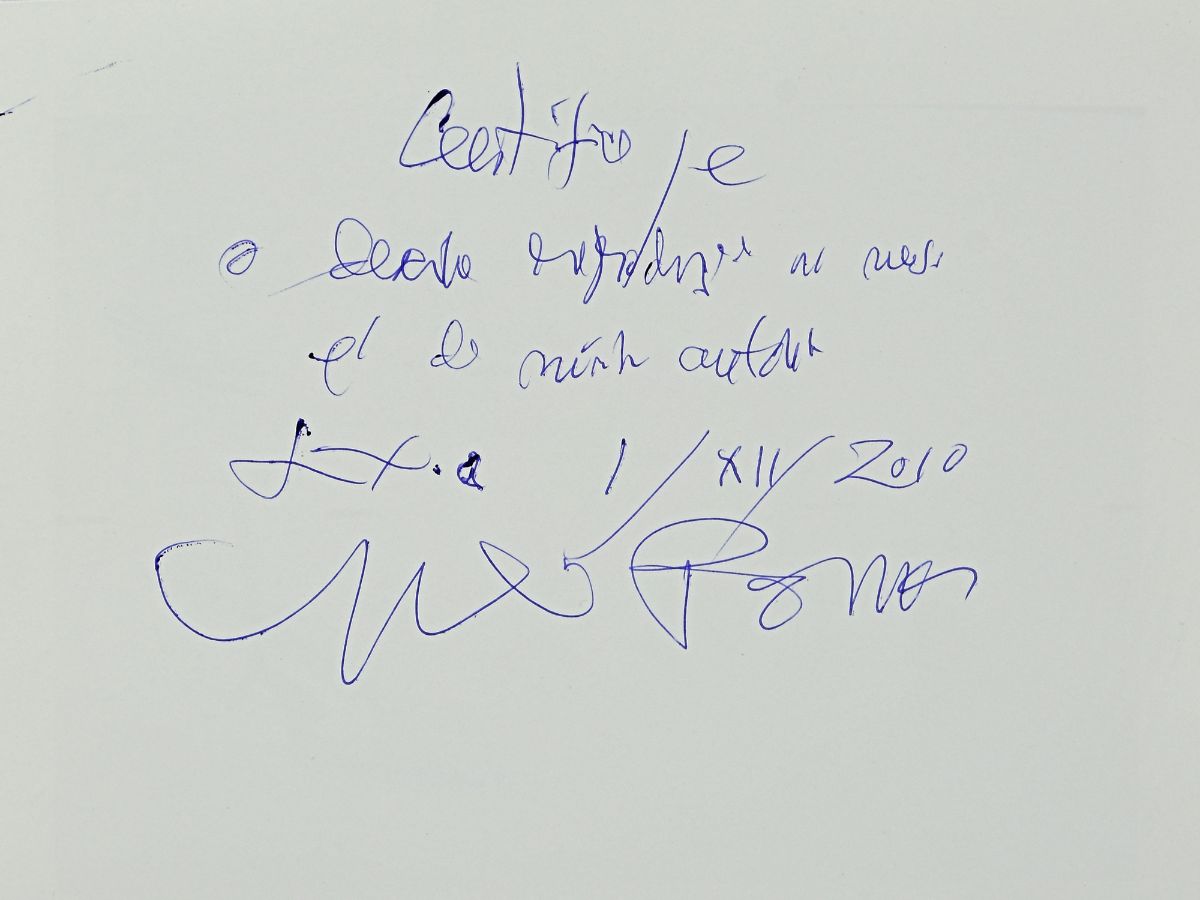 Certifico qe
o desenho reproduzido no verso
é da minha autoria
Lisboa 1/XII/2010